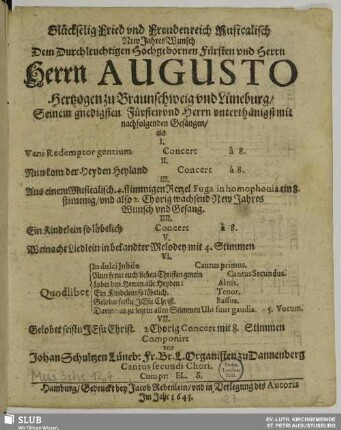 Glückselig Fried vnd Freudenreich Musicalisch
New Jahres Wunsch
Dem Durchleuchtigen Hochgebornen Fürsten vnd Herrn
Herrn AUGUSTO
Hertzogen zu Braunschweig vnd Lüneburg/
Seinem gnedigsten Fürsten vnd Herrn vnterthänigst mit
nachfolgenden Gesängen/
als
I.
Veni Redemptor gentium Concert à 8.
II.
Nun kom der Heyden Heyland Concert à 8.
III.
Aus einem Musicalisch. 4. stimmigen Fuga in homophonia ein 8.
stimmig/ vnd also 2. Chorig wachsend New Jahres
Wunsch vnd Gesang.
IIII.
Ein Kindelein so löbelich Concert à 8.
V.
Weinacht Liedlein in bekandter Melodey mit 4. Stimmen
VI.
Quodlibet
In dulci Jubilo Cantus primus.
Nun frewt euch lieben Christen gmein Cantus Secundus.
Lobet den Herren alle Heyden: Altus.
Ein Kindelein so löbelich. Tenor.
Gelobet seistu JEsu Christ. Bassus.
zu letzt in allen Stimmen Ubi sunt gaudia. à 5. Vocum.
VII.
Gelobet seistu JEsu Christ 2 Chorig Concert mit 8. Stimmen
Componirt
von
Johan Schultzen Lüneb: Fr: Br: L. Organisten zu Dannenberg
Cantus secundi Chori.
Compr: EL. S.
Mus. Sche 124
Hamburg/ Gedruckt bey Jacob Rebenlein/ vnd in Verlegung des Autoris
Im Jahr 1643.
23
SLUB
Wir führen Wissen.
EV.-LUTH. KIRCHGEMEINDE
ST. PETRI AUGUSTUSBURG